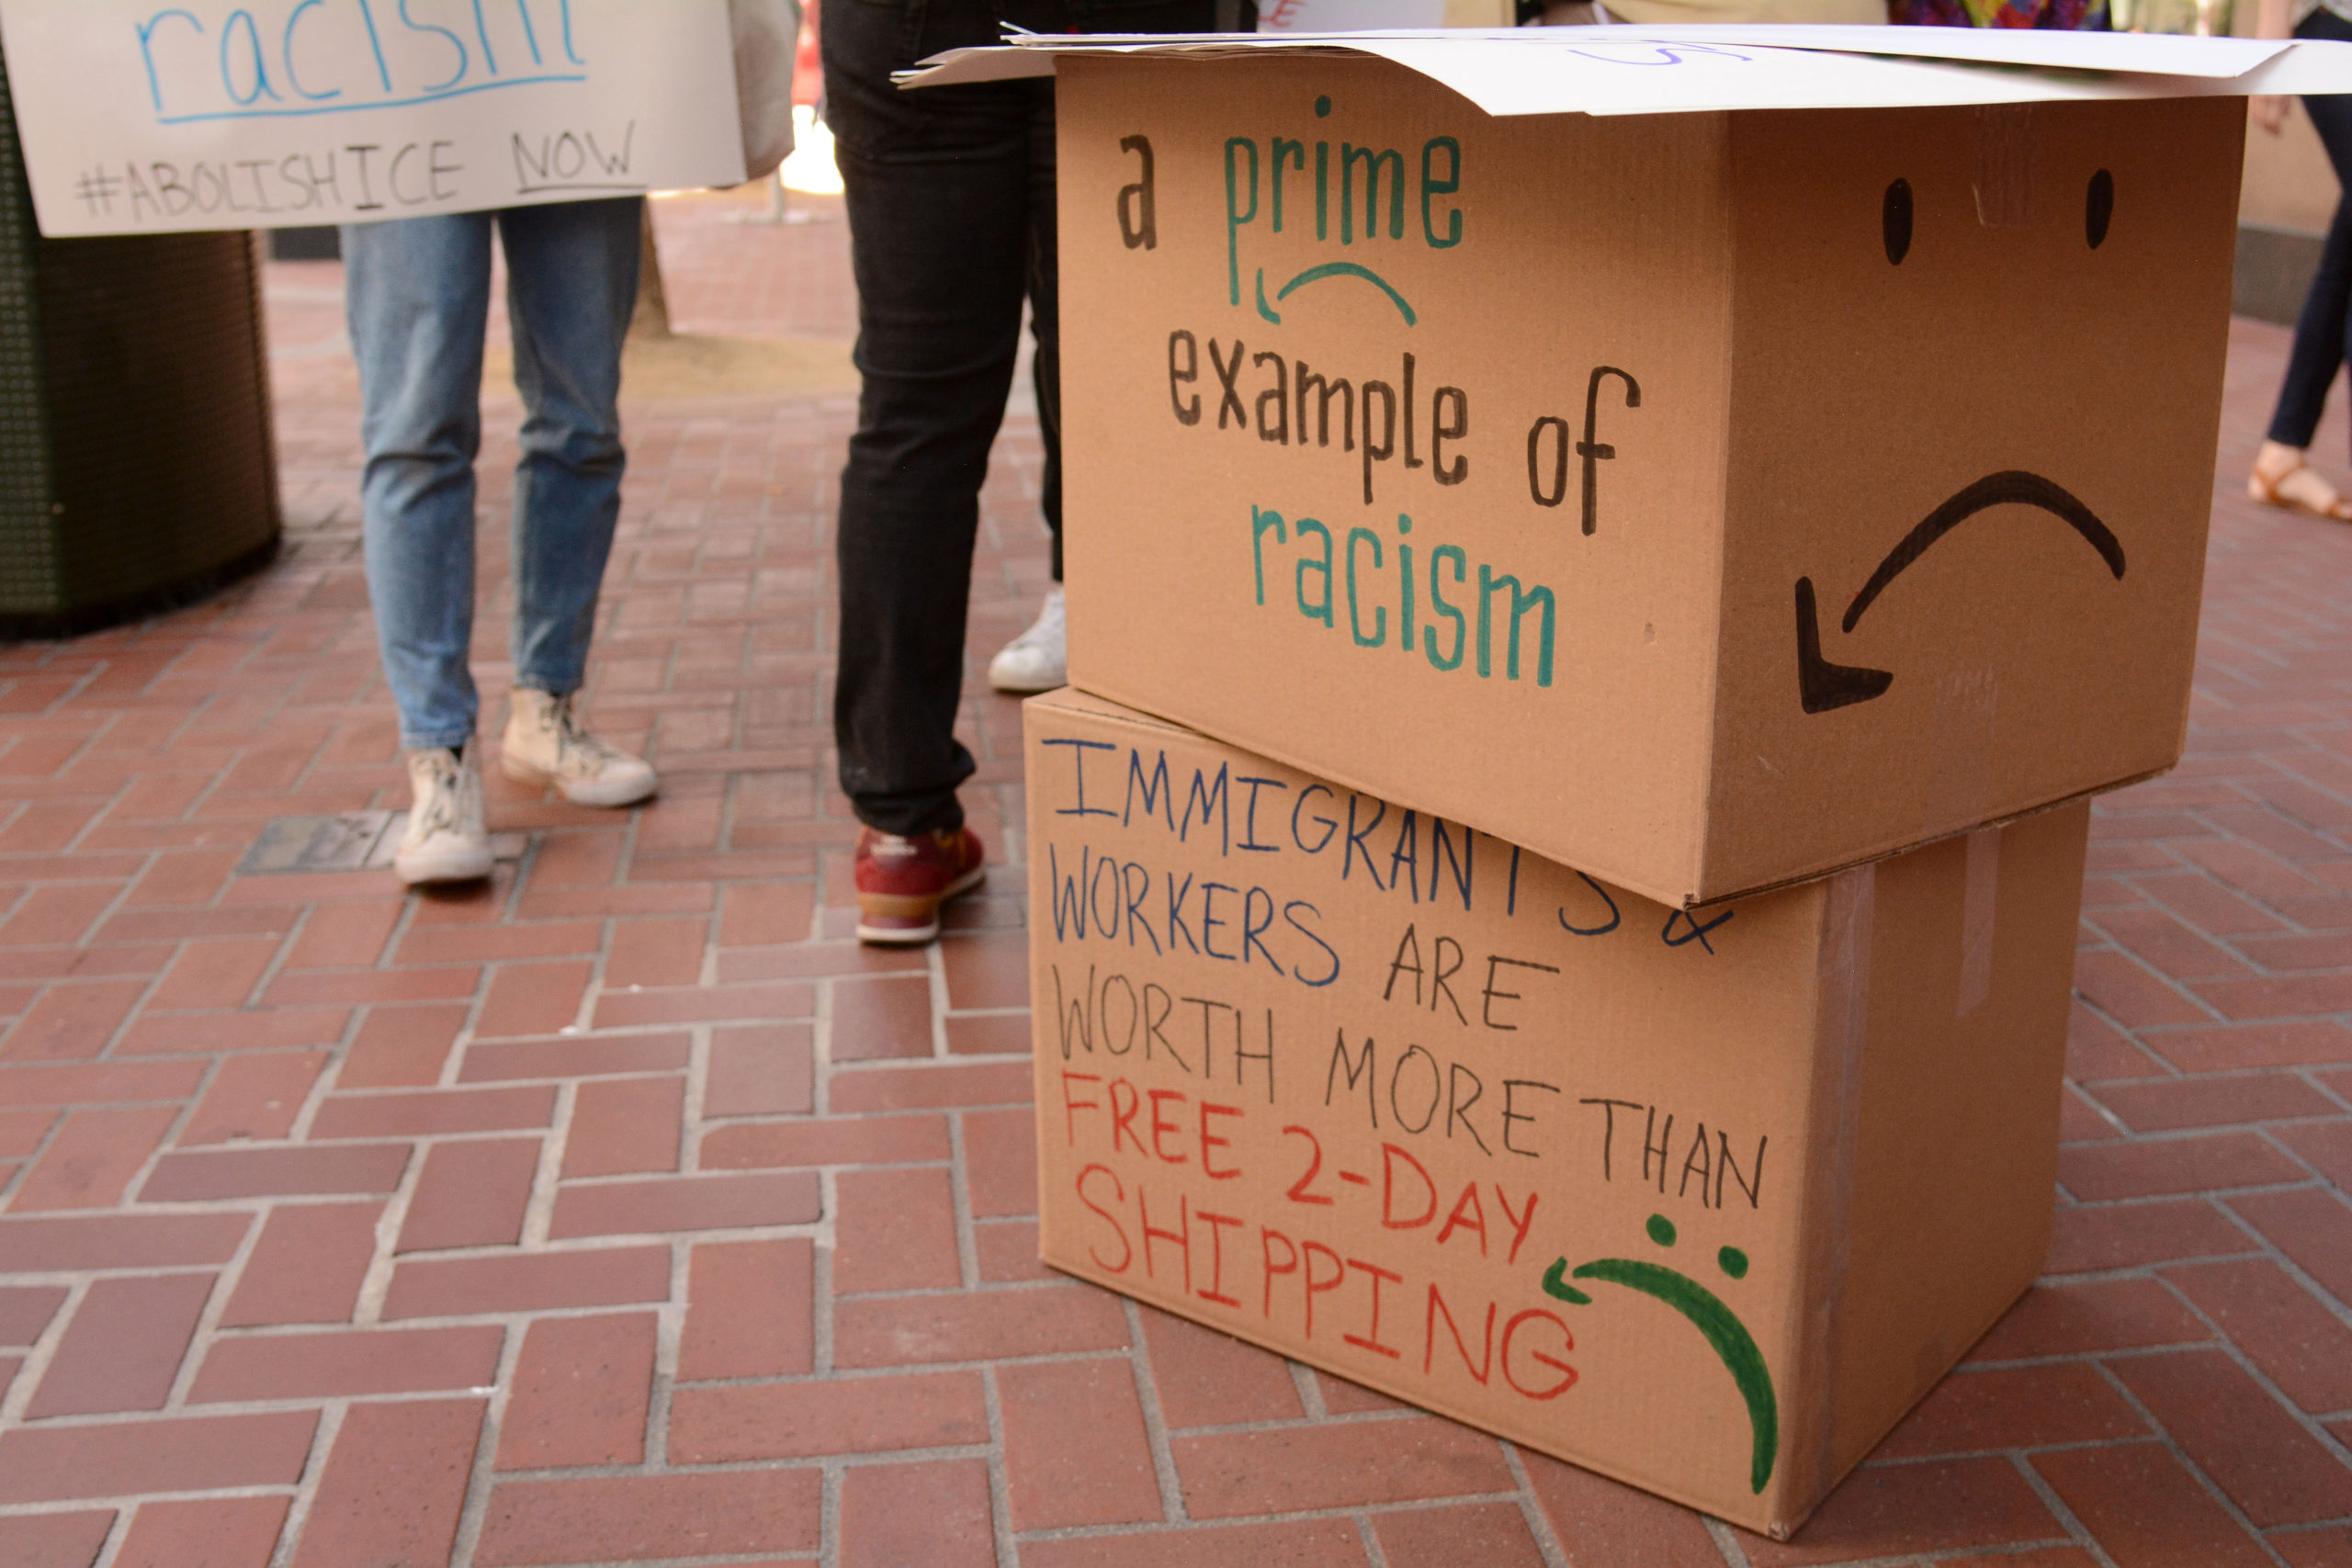 racism
#ABOLISHICE NOW
a prime
example of
racism
IMMIGRANTS &
WORKERS ARE
WORTH MORE THAN
FREE 2-DAY
SHIPPING